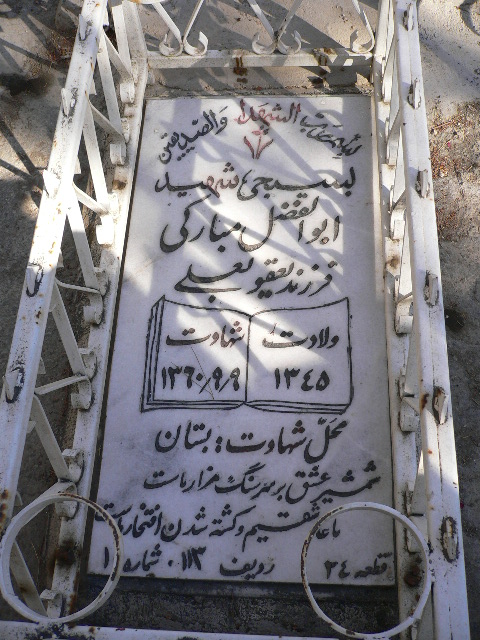 رب الشهداء والصدیقین
بسیجی شهید
ابوالفضل مبارکی
فرزند یعقوبعلی
ولادت شهادت
۱۳٤۵ ۱۳۶۰/۹/۹
محل شهادت: بستان
شمشیر عشق بر سر سنگ مزار ماست
ما عاشقیم و کشته شدن افتخار ماست
قطعه ۲٤ ردیف ۱۱۳ شماره ۱